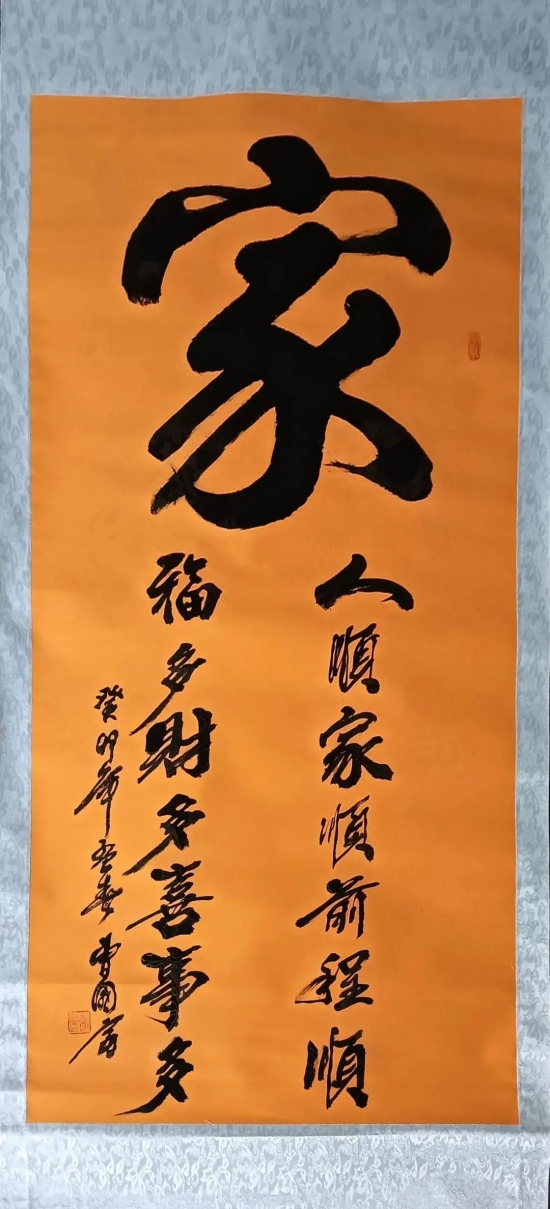 家
人順家順前程順
福多財多喜事多
癸卯年